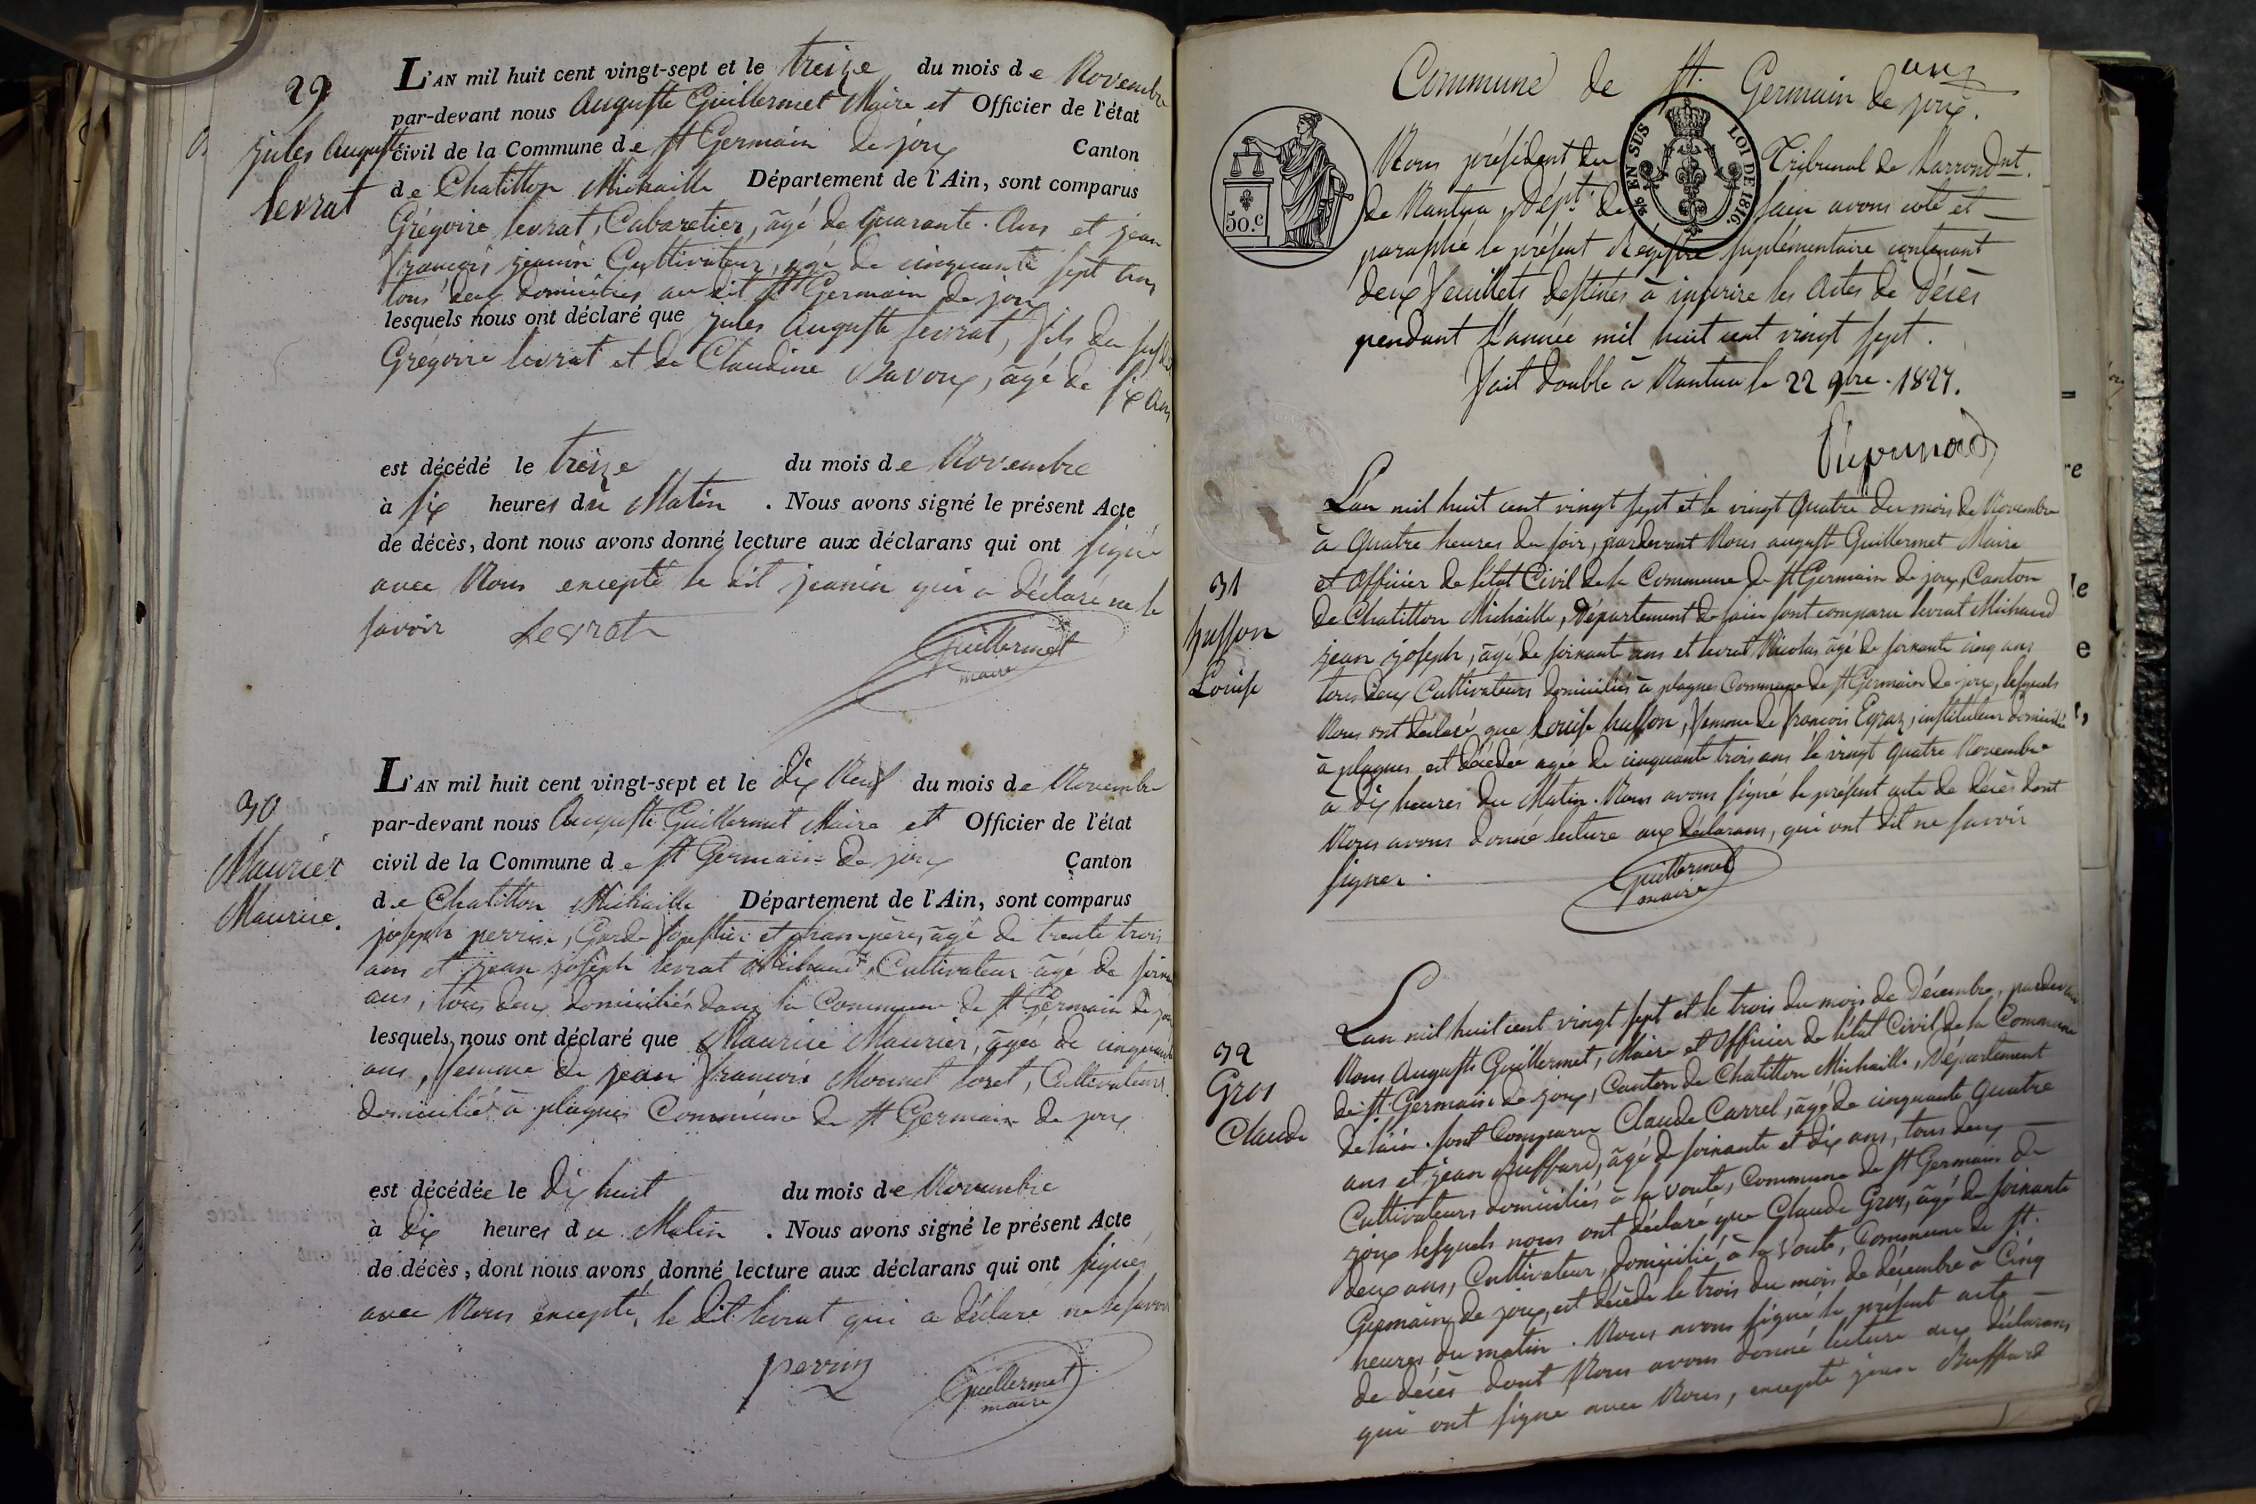 29
Jules Auguste
levrat
L'AN mil huit cent vingt-sept et le treize du mois de Novembre
par-devant nous Auguste Guillermet Maire et Officier de l'état
civil de la Commune de St Germain de joux Canton
de Chatillon Michaille Département de l'Ain, sont comparus
Grégoire levrat, Cabaretier, âgé de quarante ans et jean
francois jeanin Cultivateur, âgé de cinquante sept ans
tous deux domiciliés au dit St Germain de joux
lesquels nous ont déclaré que jules Auguste levrat, fils du susdit
Grégoire levrat et de Claudine Bavoux, âgé de six ans
est décédé le treize du mois de Novembre
à six heures du Matin . Nous avons signé le présent Acte
de décès, dont nous avons donné lecture aux déclarans qui ont signé
avec Nous excepté le dit jeanin qui a déclaré ne le
savoir Levrat Guillermet
maire
30
Maurier
Maurice.
L'AN mil huit cent vingt-sept et le dix Neuf du mois de Novembre
par-devant nous Auguste Guillermet Maire et Officier de l'état
civil de la Commune de St Germain de joux Canton
de Chatillon Michaille Département de l'Ain, sont comparus
joseph perrin, Garde forestier et champêtre, âgé de trente trois
ans et jean joseph levrat Michaud, Cultivateur âgé de soixante
ans, tous deux domiciliés dans la Commune de St Germain de joux
lesquels nous ont déclaré que Maurice Maurier, âgée de cinquante
ans, femme de jean francois Monnet loret, Cultivateur
domiciliés à plagnes Commune de St Germain de joux
est décédée le dix huit du mois de Novembre
à dix heures du Matin . Nous avons signé le présent Acte
de décès, dont nous avons donné lecture aux déclarans qui ont signés
avec Nous excepté, le dit levrat qui a déclaré ne le savoir
perrin Guillermet
maire
un
Commune de St. Germain de joux.
50.c
EN SUS
LOI DE 1816.
Nous président du Tribunal de l'arrondnt.
de Nantua, Dépt. de l'ain avons coté et
paraphé le présent Régistre suplémentaire contenant
deux feuillets destinés à inscrire les Actes de Décès
pendant l'année mil huit cent vingt sept.
fait double à Nantua le 22 9bre. 1827.
31
husson
Louise
L'an mil huit cent vingt sept et le vingt quatre du mois de Novembre
à quatre heures du soir, pardevant Nous auguste Guillermet Maire
et Officier de l'état Civil de la Commune de St Germain de joux, Canton
de Chatillon Michaille, Département de l'ain sont comparu levrat Michaud
jean joseph, âgé de soixante ans et levrat Nicolas âgé de soixante cinq ans
tous deux Cultivateurs domiciliés à plagnes Commune de St Germain de joux, lesquels
Nous ont déclaré que Louise husson, femme de francois Egraz, instituteur domicilié
à plagnes est décédée agée de cinquante trois ans le vingt quatre Novembre
à dix heures du Matin. Nous avons signé le présent acte de décès dont
Nous avons donné lecture aux déclarans, qui ont dit ne savoir
signer.
Guillermet
maire
32
Gros
Claude
L'an mil huit cent vingt sept et le trois du mois de Décembre, pardevant
Nous Auguste Guillermet, Maire et Officier de l'état Civil de la Commune
de St. Germain de joux, Canton de Chatillon Michaille, Département
de l'ain. sont Comparu Claude Carrel, âgé de cinquante quatre
ans et jean Buffard, âgé de soixante et dix ans, tous deux
Cultivateurs domiciliés à la voute, Commune de St Germain de
joux lesquels nous ont déclaré que Claude Gros, âgé de soixante
deux ans, Cultivateur, domicilié à la Voute, Commune de St.
Germain de joux, est décédé le trois du mois de décembre à Cinq
heures du matin. Nous avons signé le présent acte
de décès dont Nous avons donné lecture aux déclarans
qui ont signé avec Nous, excepté jean Buffard